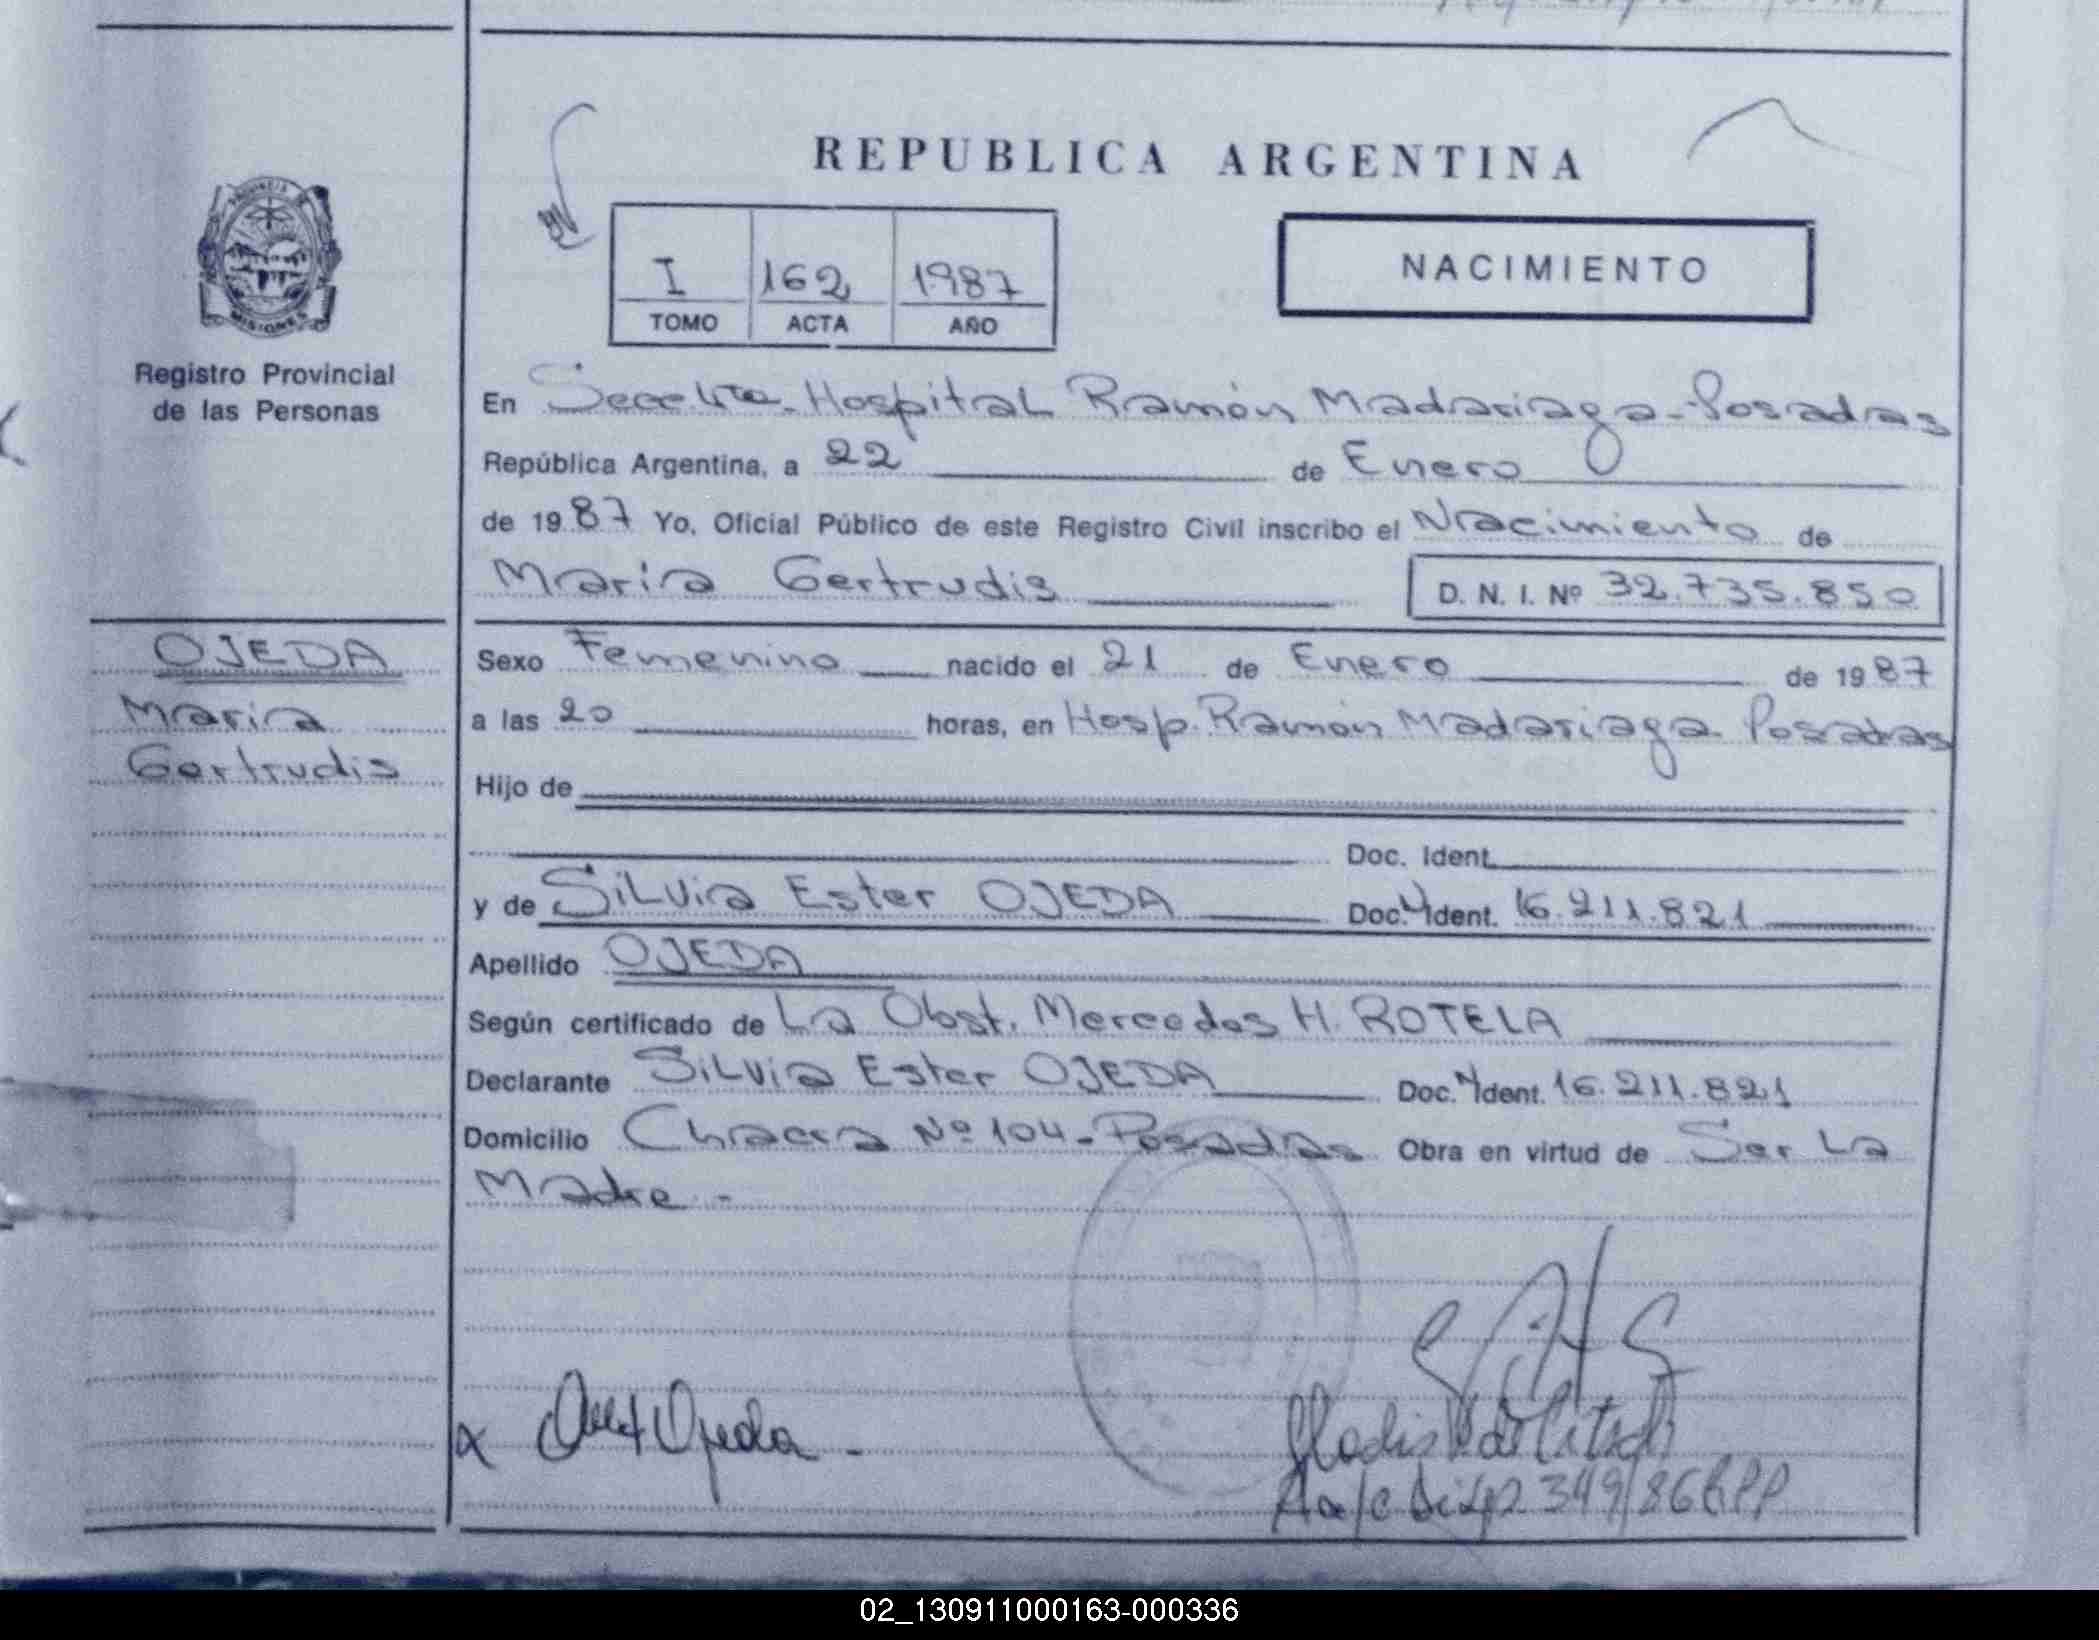 REPUBLICA ARGENTINA
PROVINCIA DE
MISIONES
Registro Provincial
de las Personas
I 162 1987
TOMO ACTA AÑO
NACIMIENTO
En Hospital Ramón Madariaga - Posadas
República Argentina, a 22 de Enero
de 1987 Yo, Oficial Público de este Registro Civil inscribo el Nacimiento de
María Gertrudis D. N. I. Nº 32.735.850
OJEDA
Maria
Gertrudis
Sexo Femenino nacido el 21 de Enero de 1987
a las 20 horas, en Hosp. Ramón Madariaga Posadas
Hijo de
Doc. Ident.
y de Silvia Ester OJEDA Doc. Ident. 16.211.821
Apellido OJEDA
Según certificado de La Obst. Mercedes H. ROTELA
Declarante Silvia Ester OJEDA Doc. Ident. 16.211.821
Domicilio Chacra Nº 104 - Posadas Obra en virtud de Ser La
Madre -
Ojeda
Gladis
349/86 RPP
02_130911000163-000336